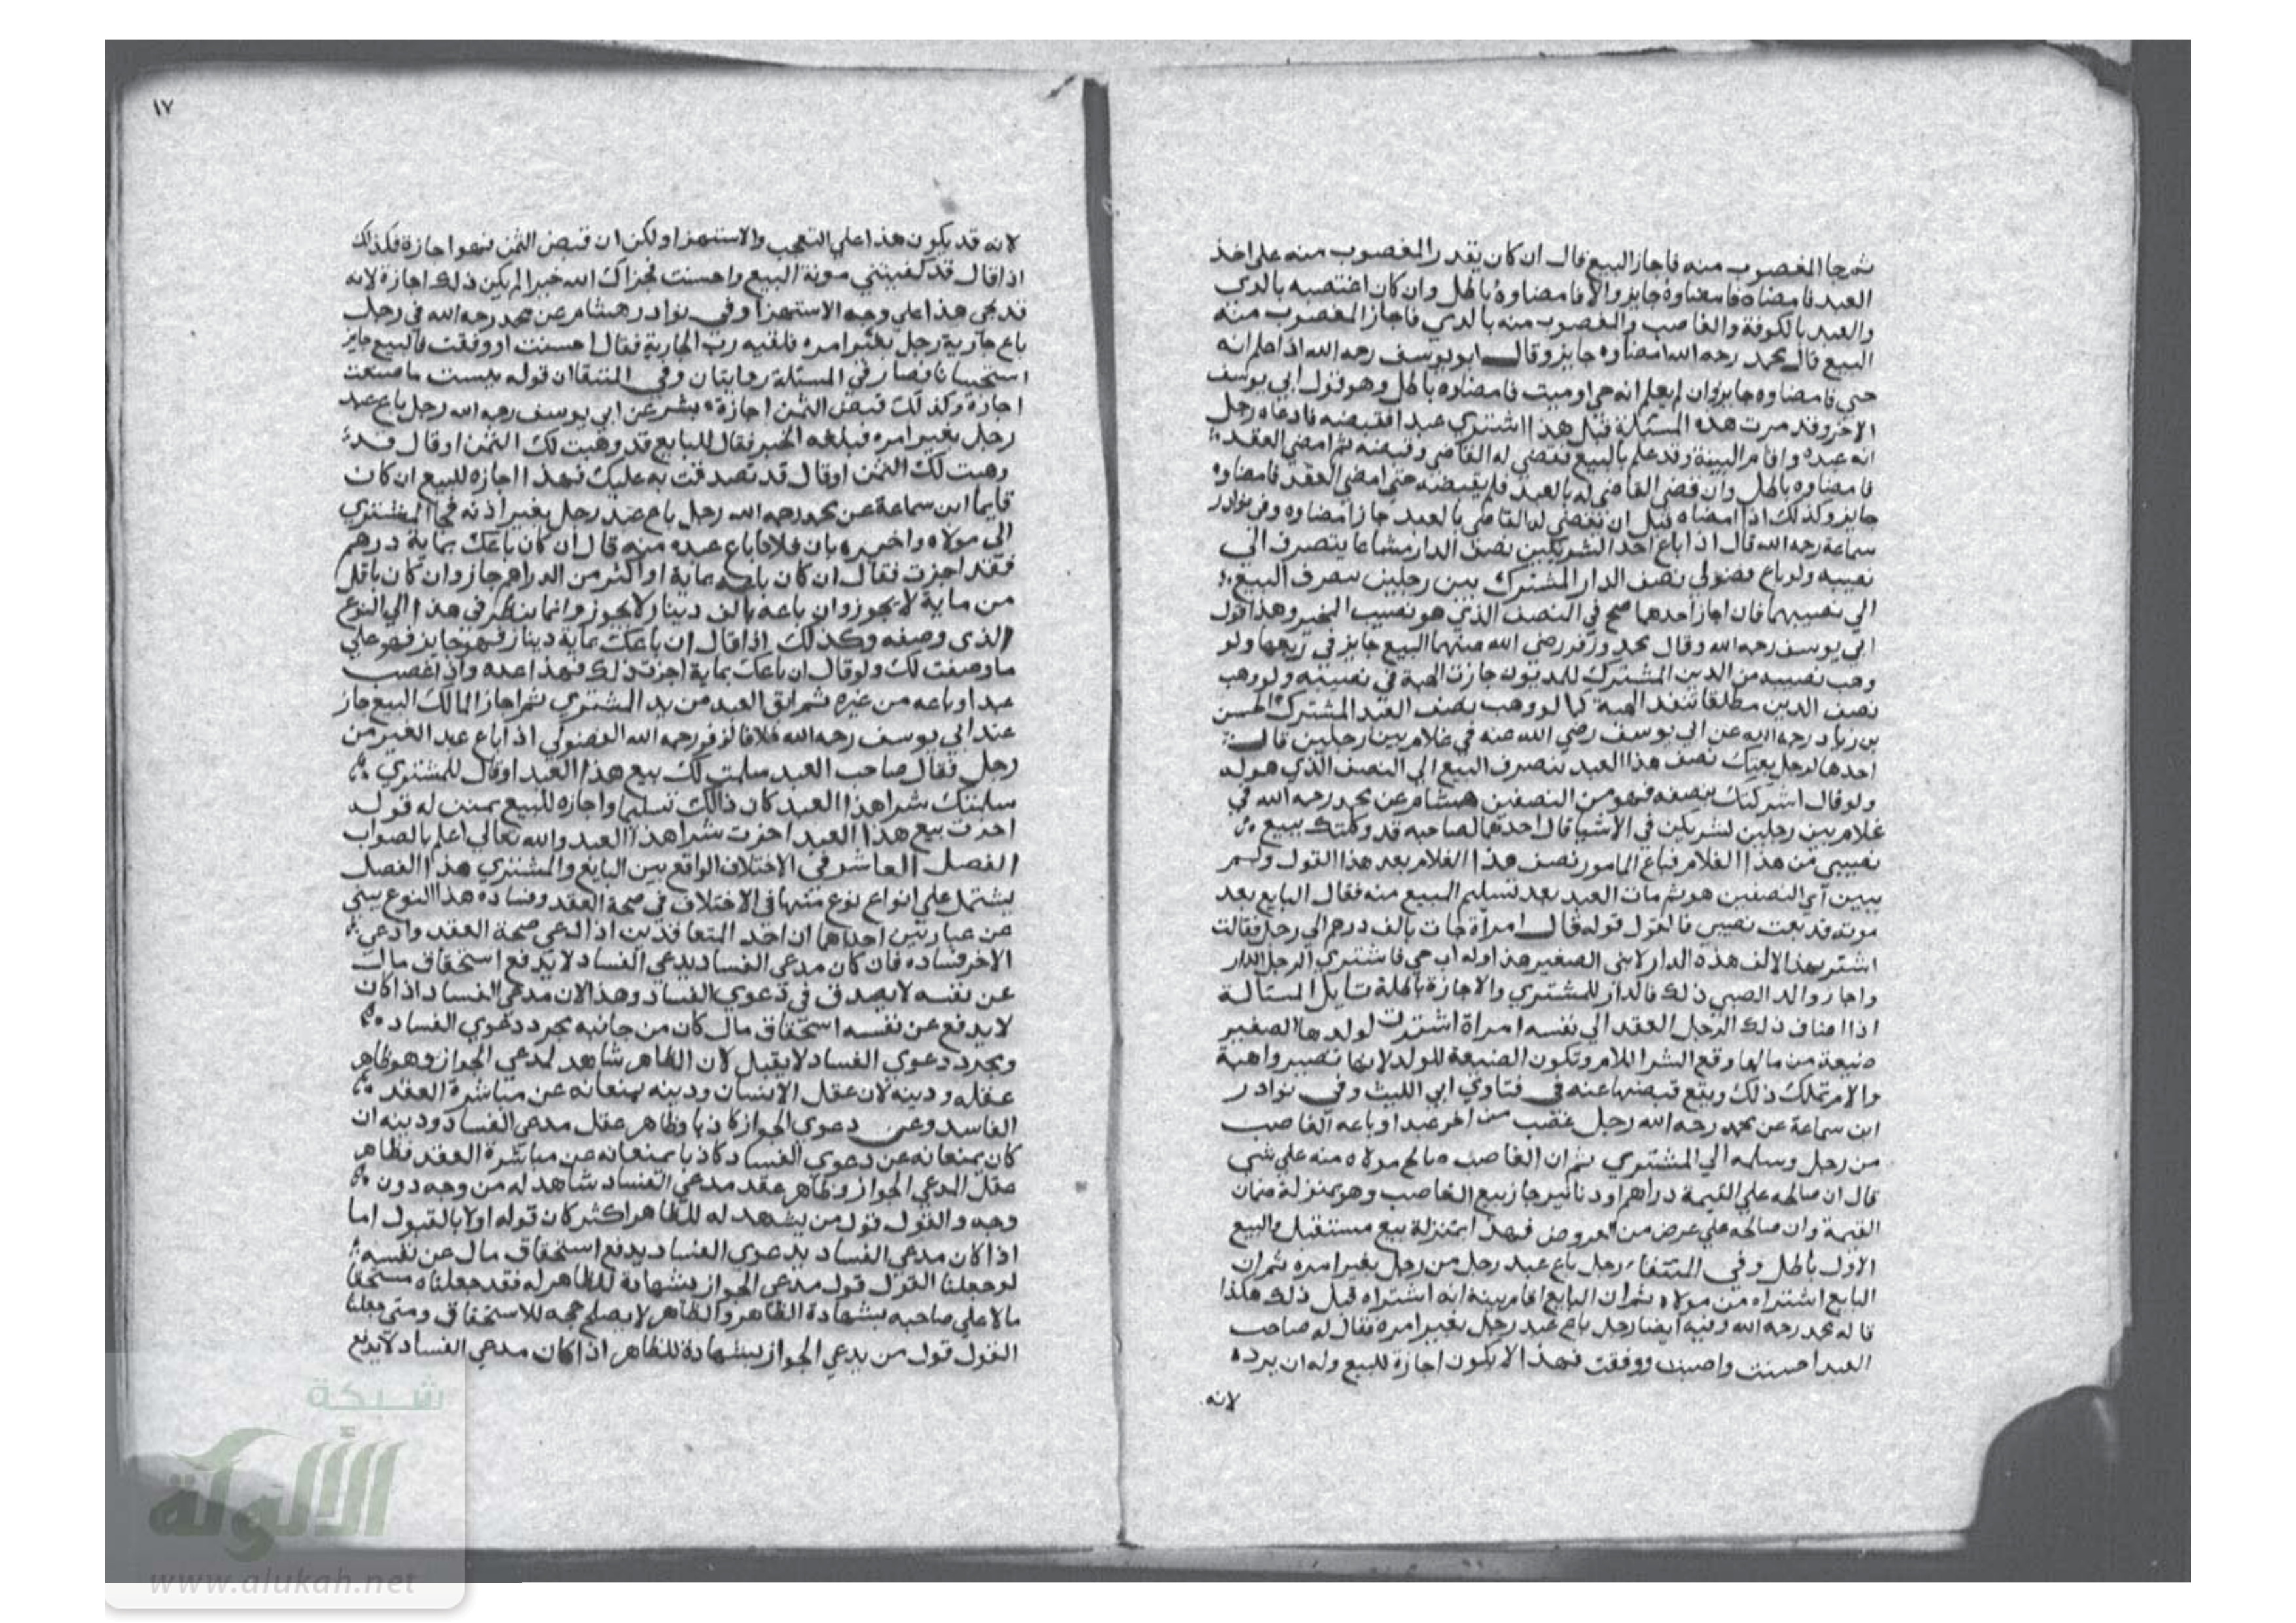 ثم جا المغصوب منه فاجاز البيع قال ان كان يقدر المغصوب منه علي اخذ
العبد فامضاه فامضاوه جايز والا فامضاوه باطل وان كان اغتصبه بالري
والعبد بالكوفة والغاصب والمغصوب منه بالري فاجاز المغصوب منه
البيع قال محمد رحمه الله امضاوه جايز وقال ابو يوسف رحمه الله اذا علم انه
حي فامضاوه جايز وان لم يعلم انه حي او ميت فامضاوه باطل وهو قول ابي يوسف
الاخر وقد مرت هذه المسئلة قبل هذا اشتري عبدا فقبضه فادعاه رجل
انه عبده واقام البينة وقد علم بالبيع فقضي له القاضي وقبضه ثم امضي العقد
فامضاوه باطل وان قضي القاضي له بالعبد فلم يقبضه حتي امضي العقد فامضاوه
جايز وكذلك اذا امضاه قبل ان يقضي له القاضي بالعبد جاز امضاوه وفي نوادر
سماعة رحمه الله قال اذا باع احد الشريكين نصف الدار مشاعا ينصرف الي
نصيبه ولو باع فضولي نصف الدار المشترك بين رجلين ينصرف البيع
الي نصيبهما فان اجاز احدهما صح في النصف الذي هو نصيب المجيز وهذا قول
ابي يوسف رحمه الله وقال محمد وزفر رضي الله عنهما البيع جايز في ربعها ولو
وهب نصيبه من الدين المشترك للمديون جازت الهبة في نصيبه ولو وهب
نصف الدين مطلقا تنفذ الهبة كما لو وهب نصف العبد المشترك الحسن
بن زياد رحمه الله عن ابي يوسف رضي الله عنه في غلام بين رجلين قال
احدهما لرجل بعتك نصف هذا العبد ينصرف البيع الي النصف الذي هو له
ولو قال اشركتك بنصفه فهو من النصفين هشام عن محمد رحمه الله في
غلام بين رجلين لشريكين في الاشيا قال احدهما لصاحبه قد وكلتك ببيع
نصيبي من هذا الغلام فباع المامور نصف هذا الغلام بعد هذا القول ولم
يبين اي النصفين هو ثم مات العبد بعد تسليم المبيع منه فقال البايع بعد
موته قد بعت نصيبي فالقول قوله قال امراة جات بالف درهم الي رجل فقالت
اشتر بهذا الالف هذه الدار لابني الصغير هذا وله اب حي فاشتري الرجل الدار
واجاز والد الصبي ذلك فالدار للمشتري والاجازة باطلة تاويل المسئالة
اذا اضاف ذلك الرجل العقد الي نفسه امراة اشترت لولدها الصغير
ضيعة من مالها وقع الشرا للام وتكون الضيعة للولد لانها تصير واهبة
والام تملك ذلك ويقع قبضها عنه في فتاوي ابي الليث وفي نوادر
ابن سماعة عن محمد رحمه الله رجل غصب من اخر عبدا وباعه الغاصب
من رجل وسلمه الي المشتري ثم ان الغاصب صالح مولاه منه علي شي
قال ان صالحه علي القيمة دراهم او دنانير جاز بيع الغاصب وهو بمنزلة ضمان
القيمة وان صالحه علي عرض من العروض فهذا بمنزلة بيع مستقبل والبيع
الاول باطل وفي المنتقا رجل باع عبد رجل من رجل بغير امره ثم ان
البايع اشتراه من مولاه ثم ان البايع اقام بينة انه اشتراه قبل ذلك هكذا
قاله محمد رحمه الله وفيه ايضا رجل باع عبد رجل بغير امره فقال له صاحب
العبد احسنت واصبت ووفقت فهذا لا يكون اجازة للبيع وله ان يرده
لانه
١٧
لانه قد يكون هذا علي التعجب والاستهزا ولكن ان قبض الثمن فهو اجازة فكذلك
اذا قال قد كفيتني مونة البيع واحسنت فجزاك الله خيرا لم يكن ذلك اجازة لانه
قد يجي هذا علي وجه الاستهزا وفي نوادر هشام عن محمد رحمه الله في رجل
باع جارية رجل بغير امره فلقيه رب الجارية فقال احسنت او وفقت فالبيع جايز
استحسانا فصار في المسئلة روايتان وفي المنتقا ان قوله بيست ما صنعت
اجازة وكذلك قبض الثمن اجازة بشر عن ابي يوسف رحمه الله رجل باع عبد
رجل بغير امره فبلغه الخبر فقال للبايع قد وهبت لك الثمن او قال قد
وهبت لك الثمن او قال قد تصدقت به عليك فهذا اجازه للبيع ان كان
قايما ابن سماعة عن محمد رحمه الله رجل باع عبد رجل بغير اذنه فجا المشتري
الي مولاه واخبره بان فلانا باع عبده منه قال ان كان باعك بماية درهم
فقد اجزت فقال ان كان باعه بماية او اكثر من الدراهم جاز وان كان باقل
من ماية لا يجوز وان باعه بالف دينار لا يجوز وانما ينظر في هذا الي النوع
الذي وصفه وكذلك اذا قال ان باعك بماية دينار فهو جايز فهو علي
ما وصفت لك ولو قال ان باعك بماية اجزت ذلك فهذا عده واذا غصب
عبدا وباعه من غيره ثم ابق العبد من يد المشتري ثم اجاز المالك البيع جاز
عند ابي يوسف رحمه الله خلافا لزفر رحمه الله الفضولي اذا باع عبد الغير من
رجل فقال صاحب العبد سلمت لك بيع هذا العبد او قال للمشتري
سلمتك شرا هذا العبد كان ذالك تسليما واجازه للبيع بمنزله قوله
اجزت بيع هذا العبد اجزت شرا هذا العبد والله تعالي اعلم بالصواب
الفصل العاشر في الاختلاف الواقع بين البايع والمشتري هذا الفصل
يشتمل علي انواع نوع منها في الاختلاف في صحة العقد وفساده هذا النوع يبني
عن عبارتين احداهما ان احد المتعاقدين اذا ادعي صحة العقد وادعي
الاخر فساده فان كان مدعي الفساد بدعوي الفساد لا يدفع استحقاق مال
عن نفسه لا يصدق في دعوي الفساد وهذا لان مدعي الفساد اذا كان
لا يدفع عن نفسه استحقاق مال كان من جانبه مجرد دعوي الفساد
وبمجرد دعوي الفساد لا يقبل لان الظاهر شاهد لمدعي الجواز وهو ظاهر
عقله ودينه لان عقل الانسان ودينه يمنعانه عن مباشرة العقد
الفاسد وعن دعوي الجواز كاذبا وظاهر عقل مدعي الفساد ودينه ان
كان يمنعانه عن دعوي الفساد كاذبا يمنعانه عن مباشرة العقد فظاهر
عقل المدعي الجواز وظاهر عقد مدعي الفساد شاهد له من وجه دون
وجه والقول قول من يشهد له الظاهر اكثر كان قوله اولا بالقبول اما
اذا كان مدعي الفساد بدعوي الفساد يدفع استحقاق مال عن نفسه
لو جعلنا القول قول مدعي الجواز بشهادة الظاهر له فقد جعلناه مستحقا
مالا علي صاحبه بشهادة الظاهر والظاهر لا يصلح حجه للاستحقاق ومتي جعلنا
القول قول من يدعي الجواز بشهادة الظاهر اذا كان مدعي الفساد لا يدفع
شبكة
الألوكة
www.alukah.net